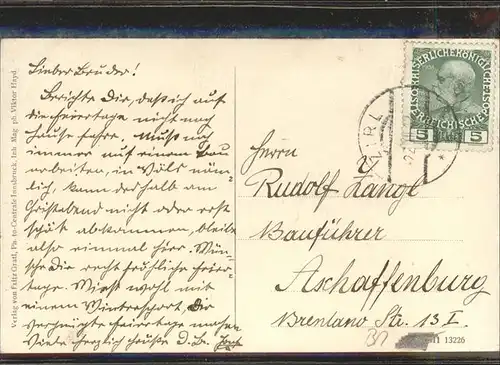 Lieber Bruder!
Berichte Dir, daß ich auf
die Feiertage nicht nach
Hause fahre. Muß noch
immer auf einem Bau
arbeiten, in Völs näm-
lich, kann deshalb am
Christabend nicht oder erst
spät abkommen, bleibe
also einmal hier. Wün-
sche Dir recht fröhliche Feier-
tage. Wirst wohl mit
einem Wintersport, Dir
vergnügte Feiertage machen
Viele herzlich Grüße d. B.
Verlag von Fritz Gratl, Photo-Centrale Innsbruck, Inh. Mag. ph. Viktor Hayd
KAISERLICHE KÖNIGLICHE
ÖSTERREICHISCHE
5 5
ZIRL
Herrn
Rudolf Zangl
Bauführer
Aschaffenburg
Brentano Str. 13 I
13226